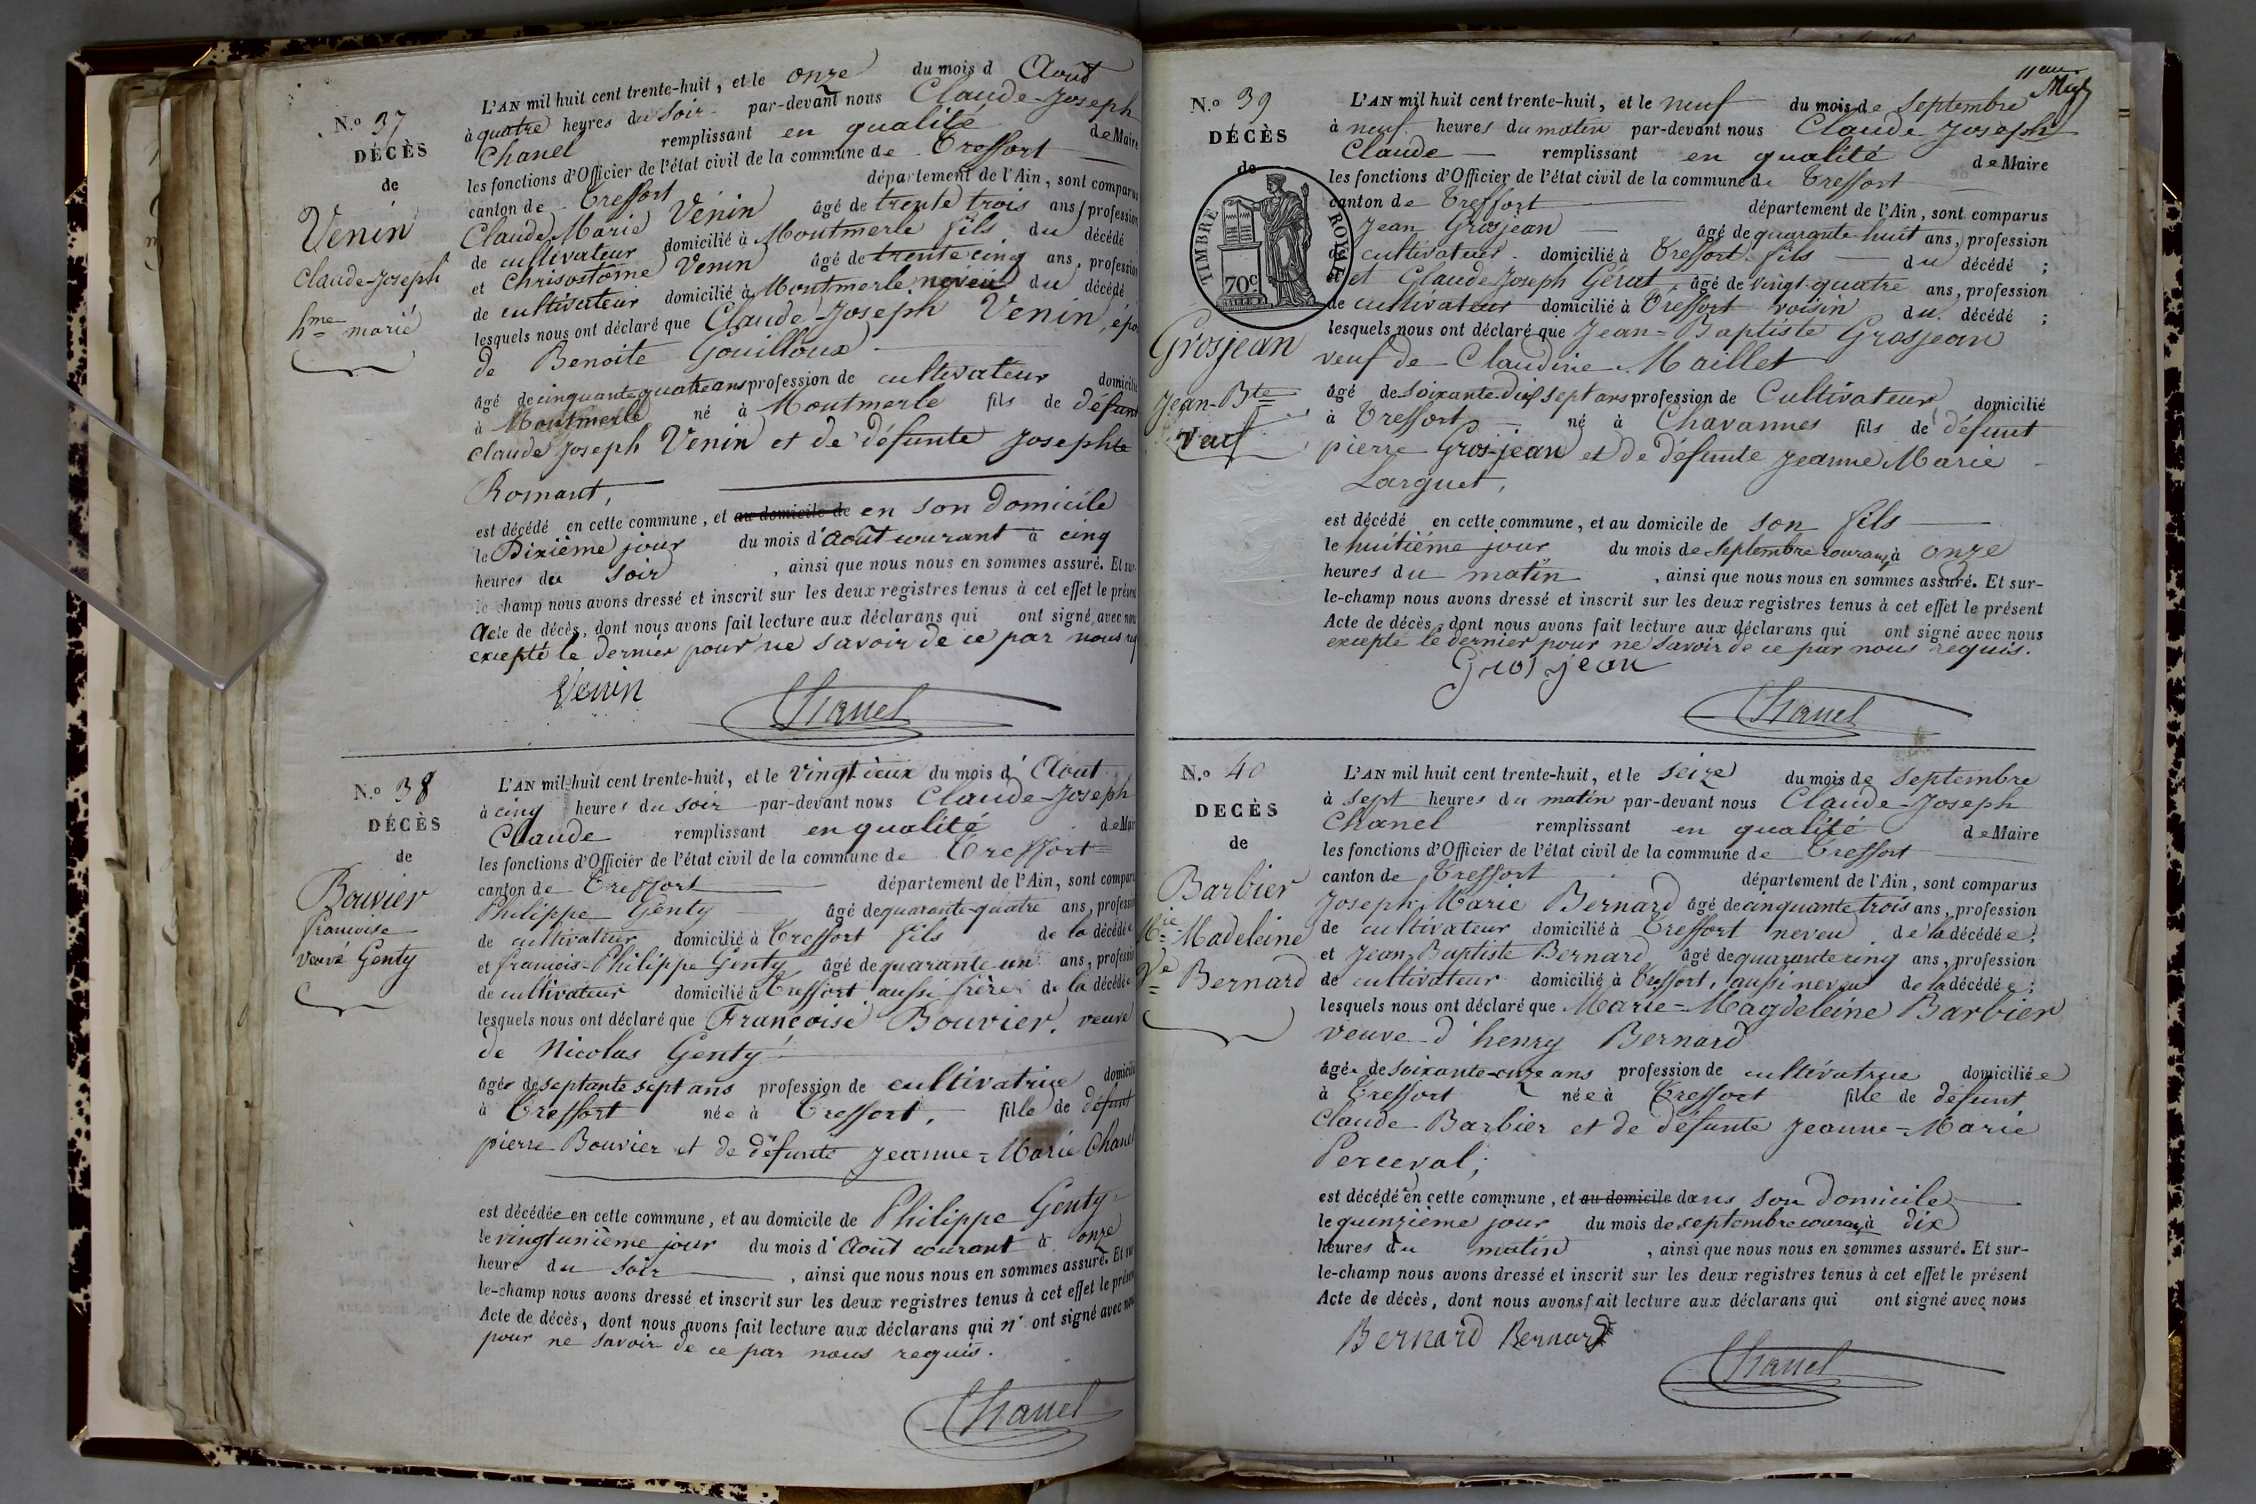 N.º 37
DÉCÈS
de
Venin
Claude-Joseph
hme marié
L'AN mil huit cent trente-huit, et le onze du mois d Août
à quatre heures du soir par-devant nous Claude-Joseph
Chanel remplissant en qualité de Maire
les fonctions d'Officier de l'état civil de la commune de Treffort
canton de Treffort département de l'Ain, sont comparus
Claude Marie Venin âgé de trente trois ans, profession
de cultivateur domicilié à Montmerle fils du décédé
et Chrisostome Venin âgé de trente cinq ans, profession
de cultivateur domicilié à Montmerle neveu du décédé
lesquels nous ont déclaré que Claude-Joseph Venin, épo
de Benoite Gouilloux
âgé de cinquante quatre ans profession de cultivateur domicilié
à Montmerle né à Montmerle fils de défunt
Claude Joseph Venin et de défunte Josephte
Romant,
est décédé en cette commune, et au domicile de en son domicile
le Dixième jour du mois d'Août courant à cinq
heures du soir , ainsi que nous nous en sommes assuré. Et sur-
le-champ nous avons dressé et inscrit sur les deux registres tenus à cet effet le présent
Acte de décès, dont nous avons fait lecture aux déclarans qui ont signé avec nous
excepté le dernier pour ne savoir de ce par nous req
Venin
Chanel
N.º 38
DÉCÈS
de
Bouvier
françoise
veuve Genty
L'AN mil huit cent trente-huit, et le vingt deux du mois d' Août
à cinq heures du soir par-devant nous Claude-Joseph
Claude remplissant en qualité de Mair
les fonctions d'Officier de l'état civil de la commune de Treffort
canton de Treffort département de l'Ain, sont comparu
Philippe Genty âgé de quarante-quatre ans, profession
de cultivateur domicilié à Treffort fils de la décédée
et françois-Philippe Genty âgé de quarante un ans, professio
de cultivateur domicilié à Treffort aussi frère de la décédée
lesquels nous ont déclaré que Françoise Bouvier, veuve
de Nicolas Genty
âgée de septante sept ans profession de cultivatrice domicilié
à Treffort née à Treffort, fille de défunt
pierre Bouvier et de défunte Jeanne-Marie Chanel
est décédée en cette commune, et au domicile de Philippe Genty
le vingt unième jour du mois d'Août courant à onze
heure du soir , ainsi que nous nous en sommes assuré. Et sur
le-champ nous avons dressé et inscrit sur les deux registres tenus à cet effet le présen
Acte de décès, dont nous avons fait lecture aux déclarans qui n' ont signé avec nous
pour ne savoir de ce par nous requis.
Chanel
N.º 39
DÉCÈS
de
TIMBRE ROYAL
70c
Grosjean
Jean-Bte
veuf
L'AN mil huit cent trente-huit, et le neuf du mois de Septembre
à neuf heures du matin par-devant nous Claude Joseph
Claude remplissant en qualité de Maire
les fonctions d'Officier de l'état civil de la commune de Treffort
canton de Treffort département de l'Ain, sont comparus
Jean Grosjean âgé de quarante-huit ans, profession
de cultivateur domicilié à Treffort fils du décédé ;
et Claude Joseph Gérat âgé de vingt-quatre ans, profession
de cultivateur domicilié à Treffort voisin du décédé ;
lesquels nous ont déclaré que Jean-Baptiste Grosjean
veuf de Claudine Maillet
âgé de soixante-dix sept ans profession de Cultivateur domicilié
à Treffort né à Chavannes fils de défunt
pierre Grosjean et de défunte Jeanne Marie
Larguet,
est décédé en cette commune, et au domicile de son fils
le huitième jour du mois de Septembre courant à onze
heures du matin , ainsi que nous nous en sommes assuré. Et sur-
le-champ nous avons dressé et inscrit sur les deux registres tenus à cet effet le présent
Acte de décès, dont nous avons fait lecture aux déclarans qui ont signé avec nous
excepté le dernier pour ne savoir de ce par nous requis.
Grosjean
Chanel
N.º 40
DECÈS
de
Barbier
Mrie Madeleine
Ve Bernard
L'AN mil huit cent trente-huit, et le seize du mois de septembre
à sept heures du matin par-devant nous Claude-Joseph
Chanel remplissant en qualité de Maire
les fonctions d'Officier de l'état civil de la commune de Treffort
canton de Treffort département de l'Ain, sont comparus
Joseph Marie Bernard âgé de cinquante trois ans, profession
de cultivateur domicilié à Treffort neveu de la décédée;
et Jean Baptiste Bernard âgé de quarante cinq ans, profession
de cultivateur domicilié à Treffort, aussi neveu de la décédée;
lesquels nous ont déclaré que Marie-Magdeleine Barbier
veuve d'henry Bernard
âgée de soixante-onze ans profession de cultivatrice domiciliée
à Treffort née à Treffort fille de défunt
Claude Barbier et de défunte Jeanne-Marie
Perceval;
est décédé en cette commune, et au domicile dans son domicile
le quinzième jour du mois de septembre courant à dix
heures du matin , ainsi que nous nous en sommes assuré. Et sur-
le-champ nous avons dressé et inscrit sur les deux registres tenus à cet effet le présent
Acte de décès, dont nous avons fait lecture aux déclarans qui ont signé avec nous
Bernard Bernard
Chanel